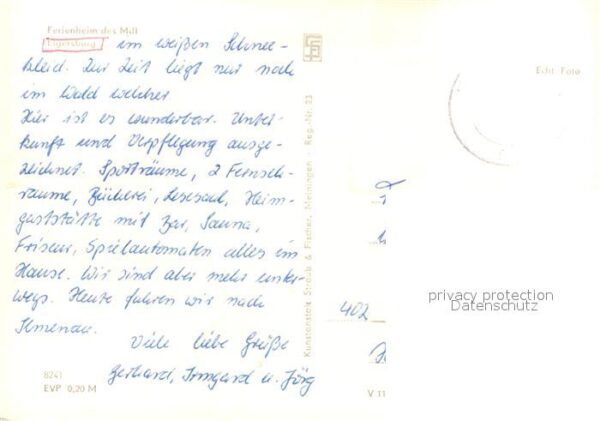 Ferienheim des MdI
Elgersburg im weißen Schnee-
kleid. Zur Zeit liegt nur noch
im Wald welcher.
Hier ist es wunderbar. Unter-
kunft und Verpflegung ausge-
zeichnet. Sporträume, 2 Fernseh-
räume, Bücherei, Lesesaal, Heim-
gaststätte mit Bar, Sauna,
Friseur, Spielautomaten alles im
Hause. Wir sind aber mehr unter-
wegs. Heute fahren wir nach
Ilmenau.
Viele liebe Grüße
Gerhard, Irmgard u. Jörg
8241
EVP 0,20 M
Kunstanstalt Straub & Fischer, Meiningen · Reg.-Nr. 23
Echt Foto
402
privacy protection
Datenschutz
V 11